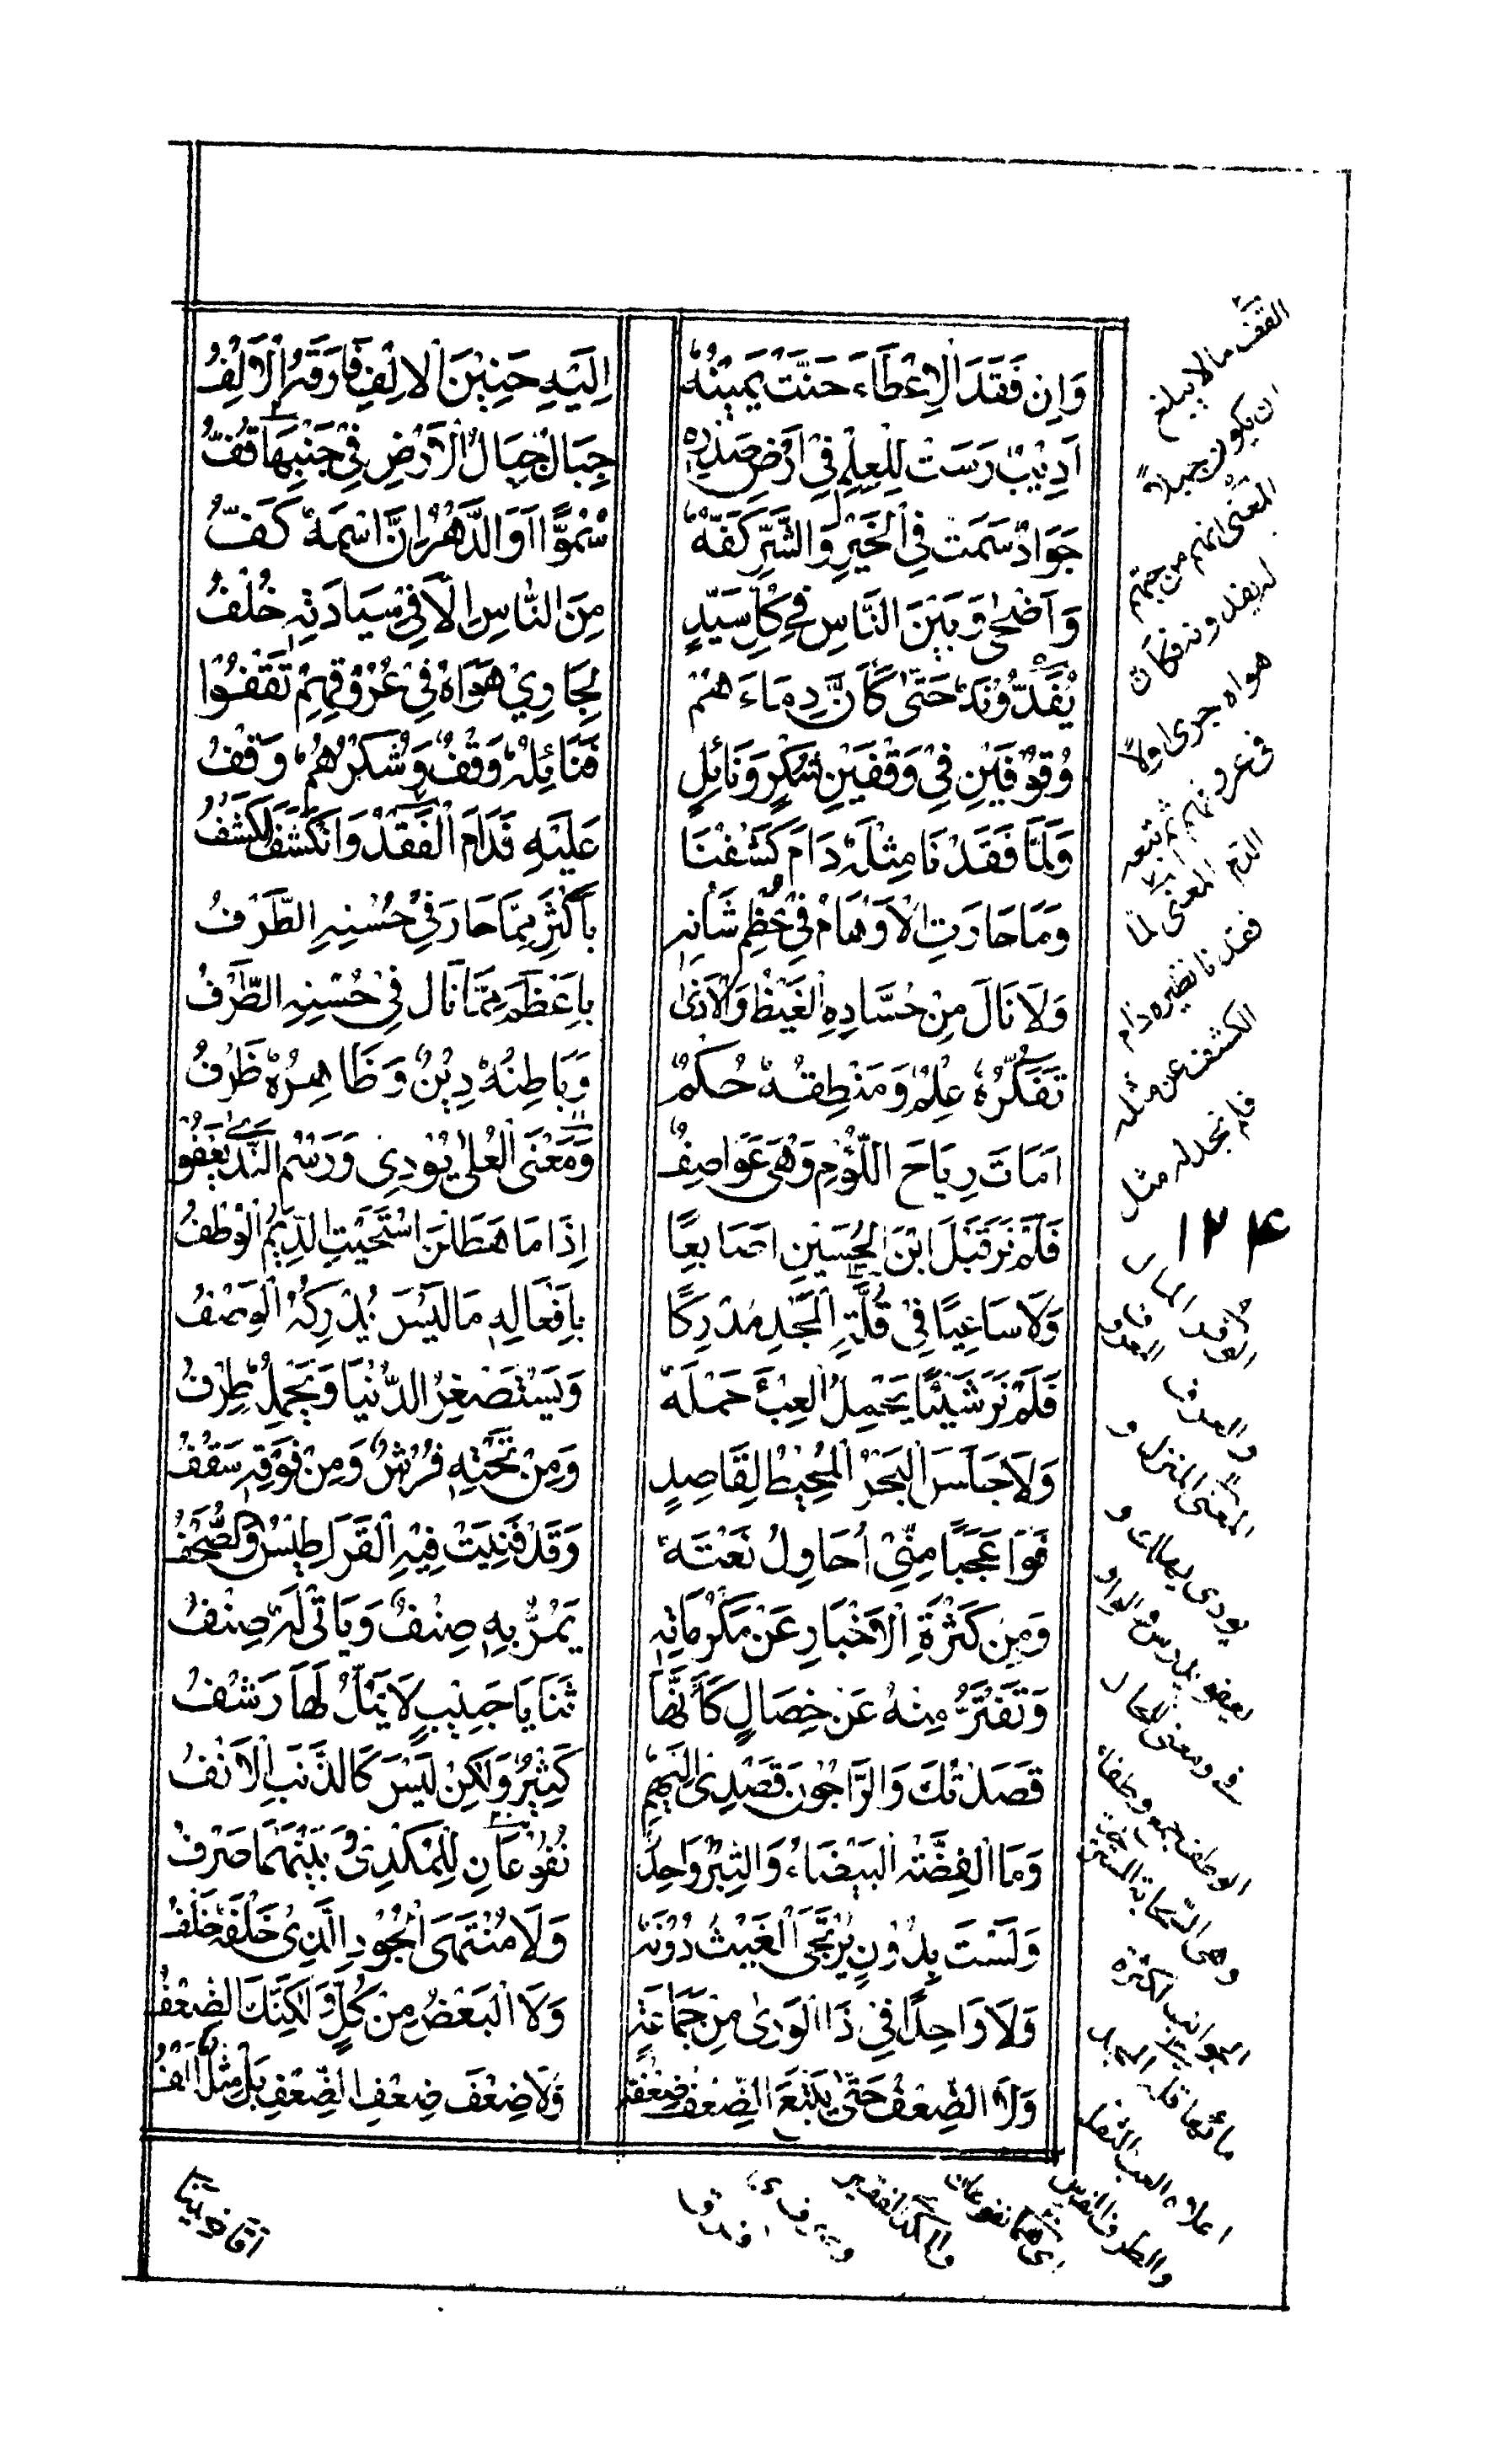 وَاِن فَقَدَ الْاِعْطَاءَ حَنَّتْ يَمِيْنُهُ اِلَيْهِ حَنِيْنَ الْاِلْفِ فَارَقَهُ الْاِلْفُ
اَدِيْبٌ رَسَتْ لِلْعِلْمِ فِيْ اَرْضِ صَدْرِهٖ جِبَالٌ جِبَالُ الْاَرْضِ فِيْ جَنْبِهَا قُفُّ
جَوَادٌ سَمَتْ فِي الْخَيْرِ وَالشَّرِّ كَفُّهُ سُمُوًّا اَوَدَّ الدَّهْرُ اَنَّ اسْمَهُ كَفُّ
وَاَضْحٰى وَبَيْنَ النَّاسِ فِيْ كُلِّ سَيِّدٍ مِنَ النَّاسِ اِلَّا فِيْ سِيَادَتِهٖ خُلْفُ
يُفَدُّوْنَهُ حَتّٰى كَاَنَّ دِمَاءَهُمْ لِجَارِيْ هَوَاهُ فِيْ عُرُوْقِهِمْ تَقْفُوْا
وُقُوْفَيْنِ فِيْ وَقْفَيْنِ شُكْرٍ وَنَائِلٍ فَنَائِلُهُ وَقْفٌ وَشُكْرُهُمُ وَقْفُ
وَلَمَّا فَقَدْنَا مِثْلَهُ دَامَ كَشْفُنَا عَلَيْهِ فَدَامَ الْفَقْدُ وَانْكَشَفَ الْكَشْفُ
وَمَا حَارَتِ الْاَوْهَامُ فِيْ عُظْمِ شَانِهٖ بِاَكْثَرَ مِمَّا حَارَ فِيْ حُسْنِهِ الطَّرْفُ
وَلَا نَالَ مِنْ حُسَّادِهِ الْغَيْظُ وَالْاَذٰى بِاَعْظَمَ مِمَّا نَالَ فِيْ حُسْنِهِ الطَّرْفُ
تَفَكُّرُهُ عِلْمٌ وَمَنْطِقُهُ حُكْمٌ وَبَاطِنُهُ دِيْنٌ وَظَاهِرُهُ ظَرْفُ
اَمَاتَ رِيَاحَ اللُّؤْمِ وَهْيَ عَوَاصِفُ وَمَعْنَى الْعُلٰى يُوْدِيْ وَرَسْمُ النَّدٰى يَعْفُوْ
فَلَمْ نَرَ قَبْلَ ابْنِ الْحُسَيْنِ اَصَابِعًا اِذَا مَا هَطَلْنَ اسْتَحْيَتِ الدِّيَمُ الْوُطْفُ
وَلَا سَاعِيًا فِيْ قُلَّةِ الْمَجْدِ مُدْرِكًا بِاَفْعَالِهٖ مَا لَيْسَ يُدْرِكُهُ الْوَصْفُ
فَلَمْ نَرَ شَيْئًا يَحْمِلُ الْعِبْءَ حَمْلَهُ وَيَسْتَصْغِرُ الدُّنْيَا وَيَحْمِلُهُ طِرْفُ
وَلَا جَلَسَ الْبَحْرُ الْمُحِيْطُ لِقَاصِدٍ وَمِنْ تَحْتِهٖ فُرْشٌ وَمِنْ فَوْقِهٖ سَقْفُ
فَوَا عَجَبًا مِنِّيْ اُحَاوِلُ نَعْتَهُ وَقَدْ فَنِيَتْ فِيْهِ الْقَرَاطِيْسُ وَالصُّحْفُ
وَمِنْ كَثْرَةِ الْاَخْبَارِ عَنْ مَكْرُمَاتِهٖ يَمُرُّ بِهٖ صِنْفٌ وَيَاْتِيْ لَهُ صِنْفُ
وَتَفْتَرُّ مِنْهُ عَنْ خِصَالٍ كَاَنَّهَا ثَنَايَا حَبِيْبٍ لَا يُمَلُّ لَهَا رَشْفُ
قَصَدْتُكَ وَالرَّاجُوْنَ قَصْدِيْ اِلَيْهِمِ كَثِيْرٌ وَلٰكِنْ لَيْسَ كَالذَّنَبِ الْاَنْفُ
وَمَا الْفِضَّةُ الْبَيْضَاءُ وَالتِّبْرُ وَاحِدًا نَفُوْعَانِ لِلْمُكْدِيْ وَبَيْنَهُمَا صَرْفُ
وَلَسْتَ بِدُوْنٍ يُرْتَجَى الْغَيْثُ دُوْنَهُ وَلَا مُنْتَهَى الْجُوْدِ الَّذِيْ خَلْفَهُ خَلْفُ
وَلَا وَاحِدًا فِيْ ذَا الْوَرٰى مِنْ جَمَاعَةٍ وَلَا الْبَعْضُ مِنْ كُلٍّ وَلٰكِنَّكَ الضِّعْفُ
وَلَا الضِّعْفُ حَتّٰى يَتْبَعَ الضِّعْفَ ضِعْفُهُ وَلَا ضِعْفَ ضِعْفِ الضِّعْفِ بَلْ مِثْلَهُ اَلْفُ
القفّ ما لا يبلغ
ان يكون جبلاً
المعنى انهم من حبّهم
له يفدونه فكان
هواه جرى اولاً
فى عروقهم ثم تبعه
الدم المعنى لما
فقدنا نظيره دام
الكشف عن مثله
فلم نجد له مثل
١٢٤
المعنى المنزل و
يودى يهلك و
يعفو يدرس
الوطف جمع وطفاء
وهى السحابة
الجوانب لكثرة
مائها قلة المجد
اعلاه العبء الثقل
والطرف الفرس
اى هما نفوعان
والمكدى الفقير